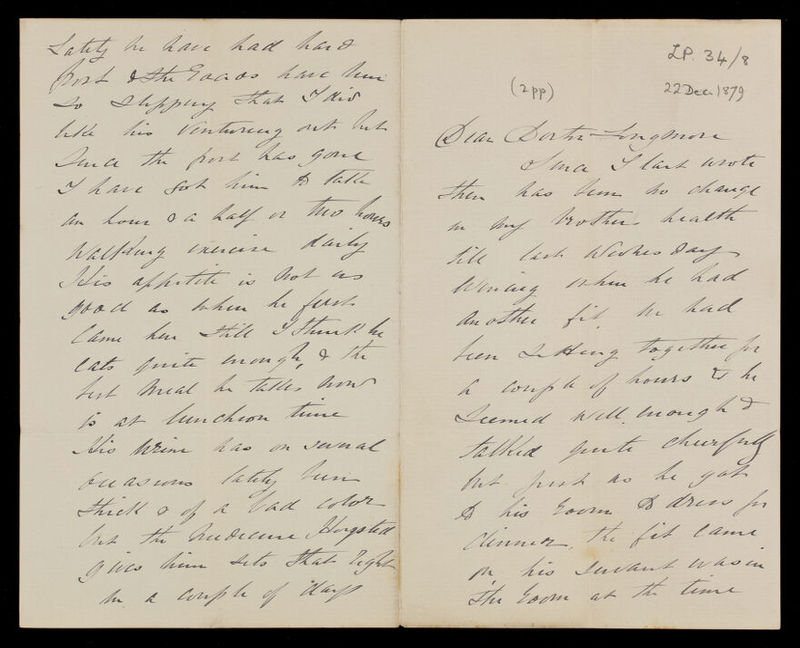 LP. 34/8
(2pp)
22 Dec 1879
Dear Doctor Longmore
Since I last wrote
there has been no change
in my brothers health
till last Wednesday
evening when he had
another fit, we had
been sitting together for
a couple of hours & he
seemed well enough &
talked quite cheerfully
but just as he got
to his room to dress for
dinner, the fit came
on, his servant was in
the room at the time
Lately we have had hard
frost & the roads have been
so slippery that I did
his venturing out but
since the frost has gone
I have got him to take
an hour & a half or two hours
walking exercise daily
His appetite is not as
good as when he first
came here still I think he
eats quite enough, & the
best meal he takes now
is at luncheon time
His urine has on several
occasions lately been
thick & of a bad color
but the medicine
gives him sets that right
in a couple of days